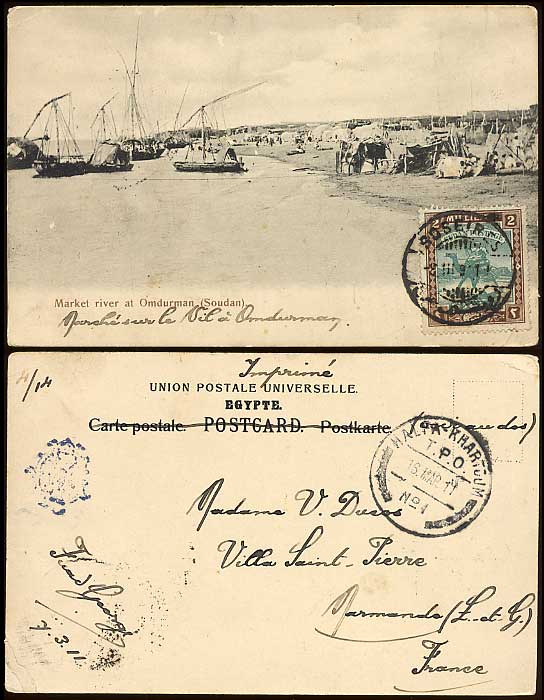 Market river at Omdurman (Soudan)
Marché sur le Nil à Omdurman.
2 MILLIEMES 2
ROSEIRES
Imprimé
UNION POSTALE UNIVERSELLE.
EGYPTE.
Carte postale. POSTCARD. Postkarte.
4/14
HALFA-KHARTOUM
T.P.O.
No 1
Madame V. Ducos
Villa Saint-Pierre
Marmande (L.-et-G.)
France
7.3.11